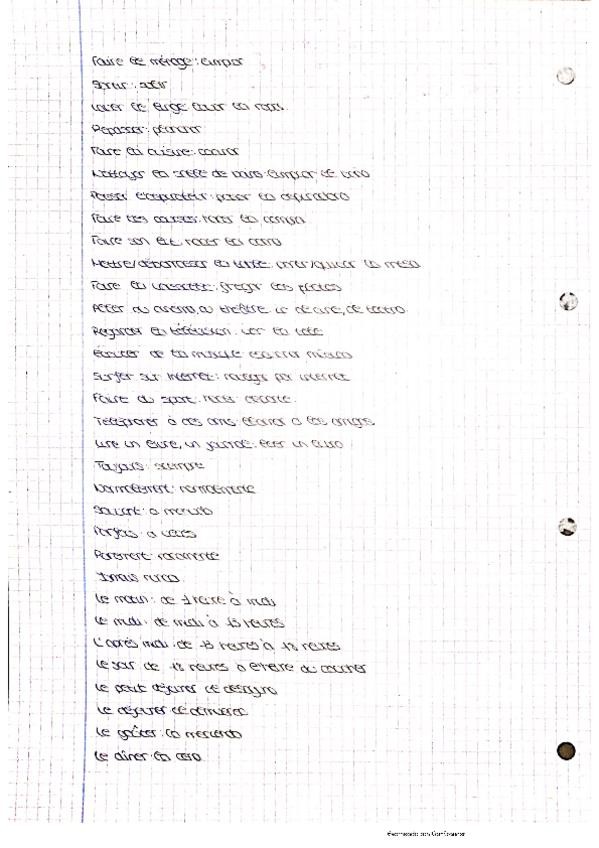 Faire le ménage: limpiar
Sortir: salir
Laver le linge: lavar la ropa.
Repasser: planchar
Faire la cuisine: cocinar
Nettoyer la salle de bains: limpiar el baño
Passer l'aspirateur: pasar la aspiradora
Faire les courses: hacer la compra
Faire son lit: hacer la cama
Mettre/débarrasser la table: poner/quitar la mesa
Faire la vaisselle: fregar los platos
Aller au cinéma, au théâtre: ir al cine, al teatro.
Regarder la télévision: ver la tele
Écouter de la musique: escuchar música
Surfer sur Internet: navegar por internet
Faire du sport: hacer deporte.
Téléphoner à des amis: llamar a los amigos
Lire un livre, un journal: leer un libro
Toujours: siempre
Normalement: normalmente
Souvent: a menudo
Parfois: a veces
Rarement: raramente
Jamais: nunca
Le matin: de 1 heure à midi
Le midi: de midi à 13 heures
L'après midi: de 13 heures à 18 heures
Le soir: de 18 heures à l'heure du coucher
Le petit déjeuner: el desayuno
Le déjeuner: el almuerzo
Le goûter: la merienda
Le dîner: la cena
Escaneado con CamScanner